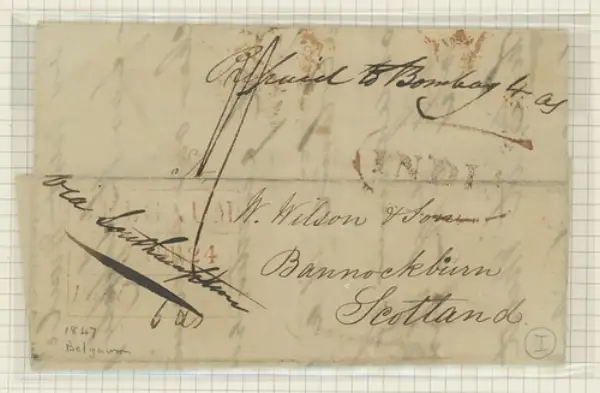 Prepaid to Bombay 4 as
INDI
via Southampton
BELGAUM
24
W. Wilson & Sons
Bannockburn
Scotland
6 as
1847
Belgaum
I